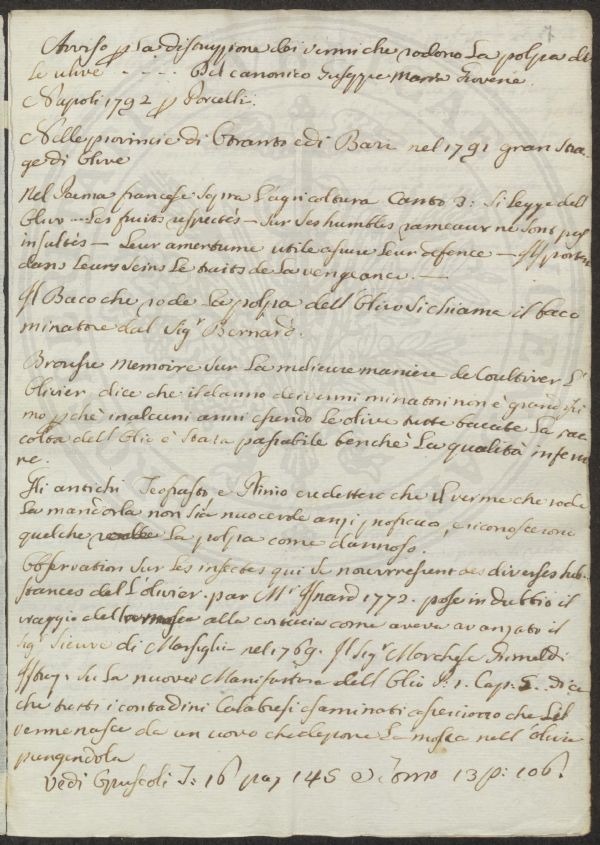 7
Avviso p la distruzzione dei vermi che rodono La polpa del
Le ulive - - - - Del canonico Giuseppe Maria Giovene
Napoli 1792 p Porcelli.
Nelle provincie di Otranto e di Bari nel 1791 gran stra-
ge di Olive
Nel Poema francese sopra L'agricoltura Canto 3: si legge dell
Ulivo - Les fruits respectés - sur ses humbles rameaux ne sont pas
insultés - Leur amertume utile assure leur defence - Il porte
dans Leurs seins Le traits de La vengeance. -
Il Baco che rode La polpa dell'Olivo si chiama il baco
minatore dal Sigr Bernard.
Memoire sur La meilleure maniere de Coultiver L'
Olivier, dice che il danno dei vermi minatori non è grandissi
mo p chè in alcuni anni essendo Le olive tutte bacate La rac
colta dell'Olio è stata passabile benchè La qualità inferio
re.
Gli antichi Teofrasto e Plinio credettero che il verme che rode
La mandorla non sia nuocevole anzi proficuo, e riconoscevano
qualche La polpa come dannoso.
Observation sur les insectes qui se nourrissent des diverses sub-
stances del L'olivier. par Mr 1772. pose in dubbio il
viaggio del alla corteccia come aveva avanzato il
Sigr Sieuve di Marsiglia nel 1769. Il Sigr Marchese Grimaldi
Istruz. su La nuova Manifattura dell'Olio P. 1. Cap. 5. dice
che tutti i contadini Calabresi esaminati asseriscono che Il
verme nasce da un uovo che depone La mosca nell'oliva
pungendola
Vedi Opuscoli T: 16 pag 145 e Tomo 13 p: 106.